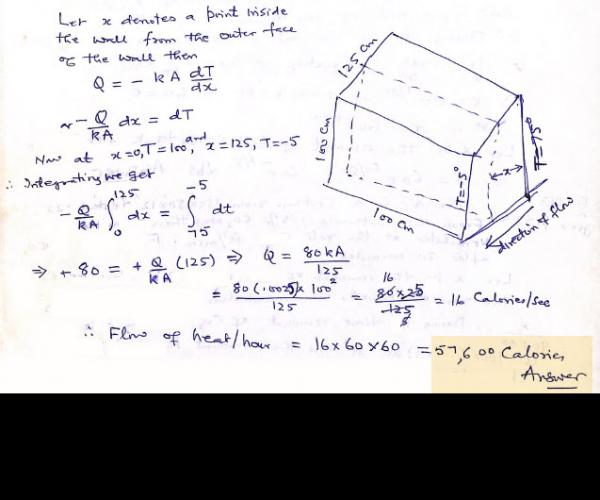 Let x denotes a point inside
the wall from the outer face
of the wall then
Q = - kA dT/dx
~ - Q/kA dx = dT
Now at x=0, T=100, and x=125, T=-5
∴ Integrating we get
-Q/kA ∫₀¹²⁵ dx = ∫₋₇₅⁻⁵ dt
⇒ +80 = + Q/kA (125) ⇒ Q = 80kA/125
= 80(.0025)x 100²/125 = 16 80x25/125 5 = 16 Calories/sec
∴ Flow of heat/hour = 16x60x60 = 57,600 Calories
Answer
125 cm
100 cm
100 cm
T=-5°
x
T=75°
direction of flow